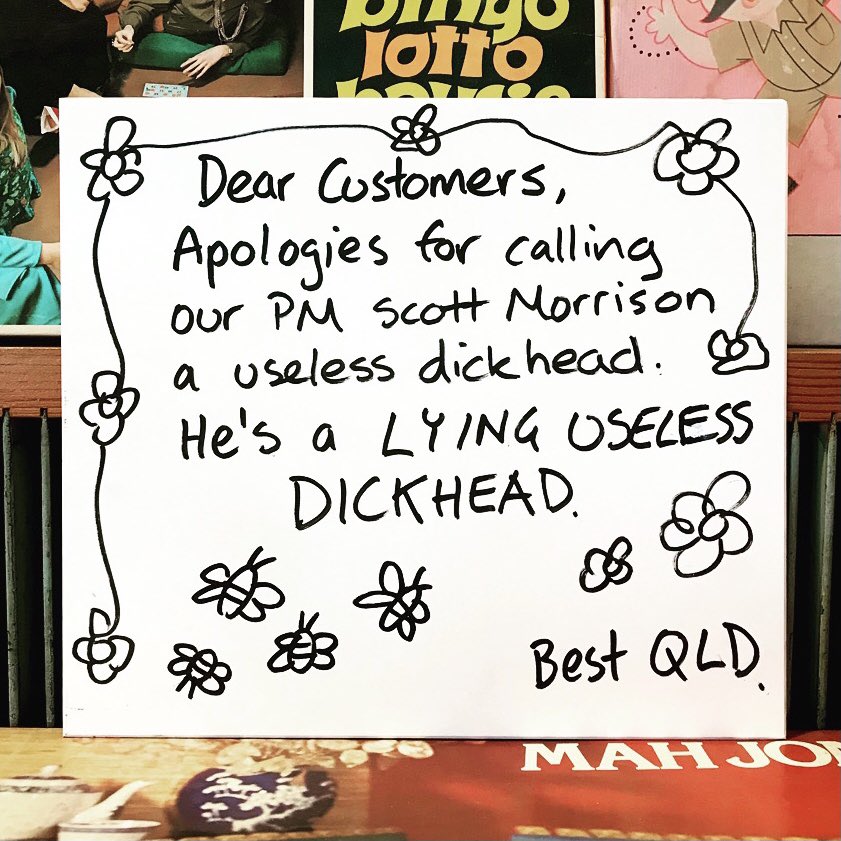 bingo
lotto
housie
Dear Customers,
Apologies for calling
our PM Scott Morrison
a useless dickhead.
He's a LYING USELESS
DICKHEAD.
Best QLD.
MAH JO